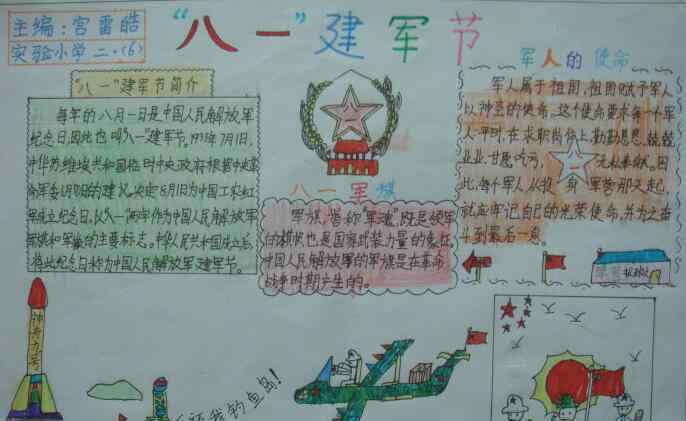 主编：宫雷皓
实验小学二·(6)
“八一”建军节
“八一”建军节简介
每年的八月一日是中国人民解放军
纪念日,因此也叫“八一”建军节,1933年7月1日,
中华苏维埃共和国临时中央政府根据中央革
命军委6月30日的建议,决定8月1日为中国工农红
军成立纪念日,以“八一”两字作为中国人民解放军
军旗和军徽的主要标志。中华人民共和国成立后,
将此纪念日称为中国人民解放军建军节。
八一军旗
军旗,誉称“军魂”,既是领军
的横状,也是国家武装力量的象征,
中国人民解放军的军旗是在革命
战争时期产生的。
军人的使命
军人属于祖国,祖国赋予军人
以神圣的使命,这个使命要求每个军
人平时,在求职岗位上勤勤恳恳,兢兢
业业,甘愿吃亏,无私奉献。因
八一
此,每个军人从投身军营那天起,
就应牢记自己的光荣使命,并为之奋
斗到最后一息。
神舟九号
还我钓鱼岛!